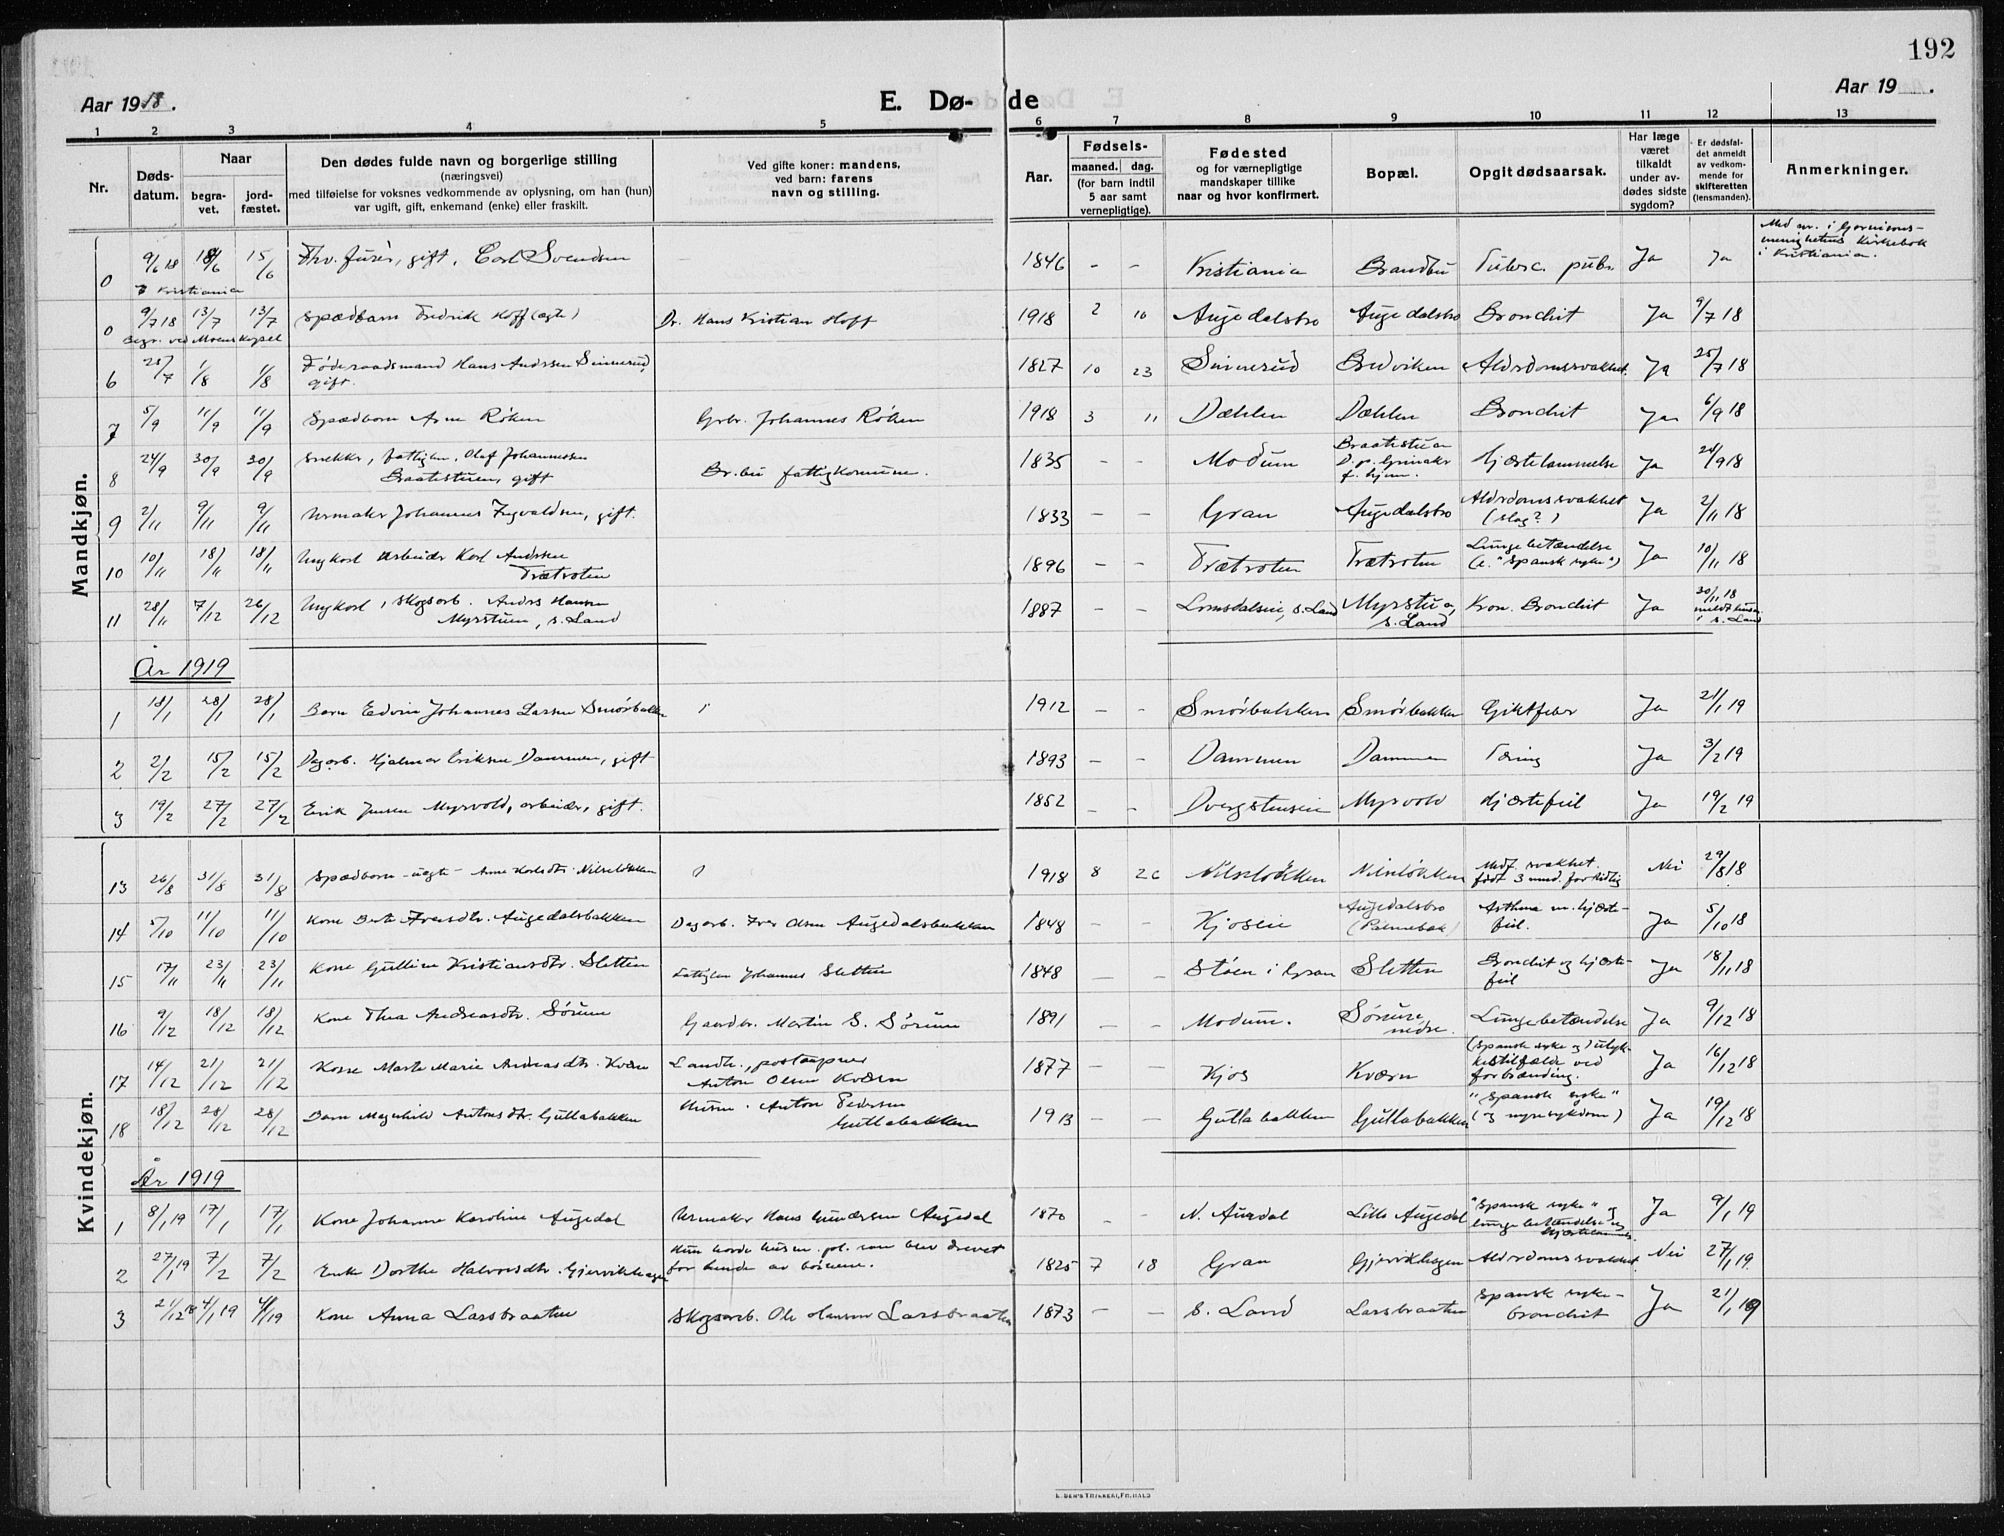 192
Aar 1918.
E. Dø-
de
Aar 19 .
1 2 3 4 5 6 7 8 9 10 11 12 13
Nr.
Døds-
datum.
Naar
begra-
vet.
jord-
fæstet.
Den dødes fulde navn og borgerlige stilling
(næringsvei)
med tilføielse for voksnes vedkommende av oplysning, om han (hun)
var ugift, gift, enkemand (enke) eller fraskilt.
Ved gifte koner: mandens,
ved barn: farens
navn og stilling.
Aar.
Fødsels-
maaned. dag.
(for barn indtil
5 aar samt
vernepligtige).
Fødested
og for værnepligtige
mandskaper tillike
naar og hvor konfirmert.
Bopæl.
Opgit dødsaarsak.
Har læge
været
tilkaldt
under av-
dødes sidste
sygdom?
Er dødsfal-
det anmeldt
av vedkom-
mende for
skifteretten
(lensmanden).
Anmerkninger.
Mandkjøn.
0 9/6 18 15/6 gift, Carl Svendsen 1846 – – Kristiania Brandbu Tuberc. Ja Ja
i Kristiania
menighetens Kirkebok
i Kristiania.
0 9/7 18 13/7 13/7 Spædbarn Fredrik Hoff (egte) Dr. Hans Kristian Hoff 1918 2 10 Augedalsbro Augedalsbro Bronchit Ja 9/7 18
Begr. ved Moens Kapel
6 1/8 1/8 Føderaadsmand Hans Anderssen Sinnerud, 1827 10 23 Sinnerud Bredviken Alderdomssvakhet. Ja 25/7 18
gift.
7 5/9 11/9 11/9 Spædbarn Arne Røken Grbr. Johannes Røken 1918 3 11 Dæhlen Dæhlen Bronchit Ja 6/9 18
8 24/9 30/9 30/9 Snekker, fattiglem, Olaf Johannessen
Braatistuen, gift Br.bu fattigkommune. 1835 – – Modum Braatistua Hjertelammelse Ja 24/9 18
9 2/11 9/11 9/11 Urmaker Johannes Ingvaldsen, gift. 1833 – – Gran Augedalsbro Alderdomssvakhet Ja 2/11 18
(slag?)
10 10/11 18/11 18/11 Ungkarl arbeider Karl Anderssen
Trætroten 1896 – – Trætroten Trætroten Lungebetændelse Ja 10/11 18
(e. "Spansk syke")
11 28/11 7/12 26/12 Ungkarl, skogsarb. Anders Hansen
Myrstuen, s. Land 1887 – – Lomsdalseie, s. Land Myrstua, Kron. Bronchit Ja 30/11 18
s. Land
i s. Land
År 1919
1 18/1 28/1 28/1 Barn Edvin Johannes Larsen Smørbakken 1912 – – Smørbakken Smørbakken Giktfeber Ja 21/1 19
2 2/2 15/2 15/2 Dagarb. Hjalmar Eriksen Dammen, gift 1893 – – Dammen Dammen Tæring Ja 3/2 19
3 19/2 27/2 27/2 Erik Jensen Myrvold, arbeider, gift. 1852 – – Dvergsteneie Myrvold Hjertefeil Ja 19/2 19
Kvindekjøn.
13 26/8 31/8 31/8 Spædbarn -uegte- Anne Karlsdtr. Nilseløkken 1918 8 26 Nilseløkken Nilseløkken Medf. svakhet. Nei 29/8 18
født 3 mnd. for tidlig
14 5/10 11/10 11/10 Kone Berte Iversdtr. Augedalsbakken Dagarb. Iver Olsen Augedalsbakken 1848 – – Kjoseie Augedalsbro Asthma m. hjerte- Ja 5/10 18
feil.
15 17/11 23/11 23/11 Kone Gulline Kristiansdtr. Sletten Fattiglem Johannes Sletten 1848 – – Støen i Gran Sletten Bronchit og hjerte- Ja 18/11 18
feil
16 9/12 18/12 18/12 Kone Thea Andreasdtr. Sørum Gaardbr. Martin S. Sørum 1891 – – Modum. Sørum Lungebetændelse Ja 9/12 18
nedre.
17 14/12 21/12 21/12 Kone Marte Marie Andreasdtr. Kværn Landh., postaapner
Anton Olsen Kværn 1877 – – Kjos Kværn (Spansk syke og) ulyk- Ja 16/12 18
kestilfælde ved
forbrænding.
18 18/12 28/12 28/12 Barn Magnhild Antonsdtr. Gullabakken Husm. Anton Pedersen
Gullabakken 1913 – – Gullabakken Gullabakken "Spansk syke" Ja 19/12 18
(og nyresykdom)
År 1919
1 8/1 19 17/1 17/1 Kone Johanne Karoline Augedal Urmaker Hans Gundersen Augedal 1870 – – N. Aurdal Lille Augedal "Spansk syke" og Ja 9/1 19
lungebetændelse og
hjertelammelse.
2 27/1 19 7/2 7/2 Enke Dorthe Halvorsdtr. Gjervikhagen Hun havde husm. pl. som blev drevet
for hende av børnene. 1825 7 18 Gran Gjervikhagen Alderdomssvakhet. Nei 27/1 19
3 21/12 18 4/1 19 4/1 19 Kone Anna Larsbraaten Skogsarb. Ole Hansen Larsbraaten 1873 – – S. Land Larsbraaten Spansk syke- Ja 2/1 19
bronchit